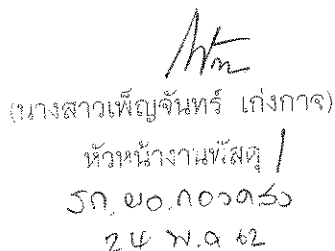 (นางสาวเพ็ญจันทร์ เก่งกาจ)
หัวหน้างานพัสดุ
รก. ผอ.กองคลัง
24 พ.ค 62